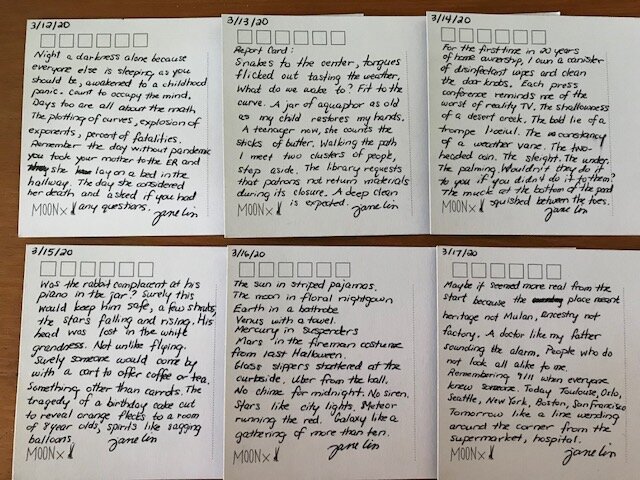 3/12/20
Night a darkness alone because
everyone else is sleeping as you
should be, awakened to a childhood
panic. Count to occupy the mind.
Days too are all about the math
The plotting of curves, explosion of
exponents, percent of fatalities.
Remember the day without pandemic
you took your mother to the ER and
she lay on a bed in the
hallway. The day she considered
her death and asked if you had
any questions.
jane lin
MOON X
3/13/20
Report Card:
Snakes to the center, tongues
flicked out tasting the weather.
What do we wake to? Fit to the
curve. A jar of aquaphor as old
as my child restores my hands.
A teenager now, she counts the
sticks of butter. Walking the path
I meet two clusters of people,
step aside. The library requests
that patrons not return materials
during its closure. A deep clean
is expected.
jane lin
MOON X
3/14/20
For the first time in 20 years
of home ownership, I own a canister
of disinfectant wipes and clean
the door knobs. Each press
conference reminds me of the
worst of reality TV. The shallowness
of a desert creek. The bold lie of a
trompe l'oeiul. The constancy
of a weather vane. The two-
headed coin. The sleight. The under.
The palming. Wouldn't they do it
to you if you didn't do it to them?
The muck at the bottom of the pond
squished between the toes.
jane lin
MOON X
3/15/20
Was the rabbit complacent at his
piano in the jar? Surely this
would keep him safe, a few shrubs,
the stars falling and rising. His
head was lost in the white
grandness. Not unlike flying.
Surely someone would come by
with a cart to offer coffee or tea.
Something other than carrots. The
tragedy of a birthday cake cut
to reveal orange flecks to a room
of 8 year olds, spirits like sagging
balloons.
jane lin
MOON X
3/16/20
The sun in striped pajamas.
The moon in floral nightgown
Earth in a bathrobe
Venus with a towel
Mercury in suspenders
Mars in the fireman costume
from last Halloween.
Glass slippers shattered at the
curbside. Uber from the ball.
No chime for midnight. No siren.
Stars like city lights. Meteor
running the red. Galaxy like a
gathering of more than ten.
jane lin
MOON X
3/17/20
Maybe it seemed more real from the
start because the place meant
heritage not Mulan, ancestry not
factory. A doctor like my father
sounding the alarm. People who do
not look all alike to me.
Remembering 9/11 when everyone
knew someone. Today Toulouse, Oslo,
Seattle, New York, Boston, San Francisco
Tomorrow like a line wending
around the corner from the
supermarket, hospital.
jane lin
MOON X